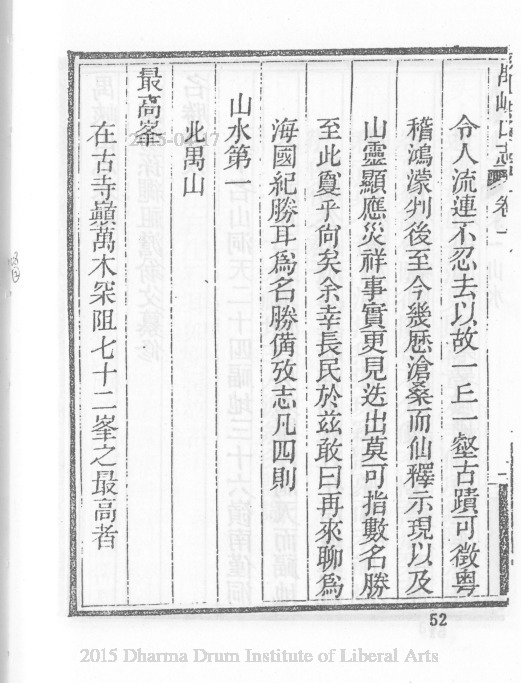 令人流連不忍去以故一丘一壑古蹟可徵粵
稽鴻濛判後至今幾歷滄桑而仙釋示現以及
山靈顯應災祥事實更見迭出莫可指數名勝
至此敻乎尚矣余幸長民於茲敢曰再來聊為
海國紀勝耳為名勝備攷志凡四則
山水第一
此禺山
最高峯
在古寺巔萬木罙阻七十二峯之最高者
52
2015 Dharma Drum Institute of Liberal Arts